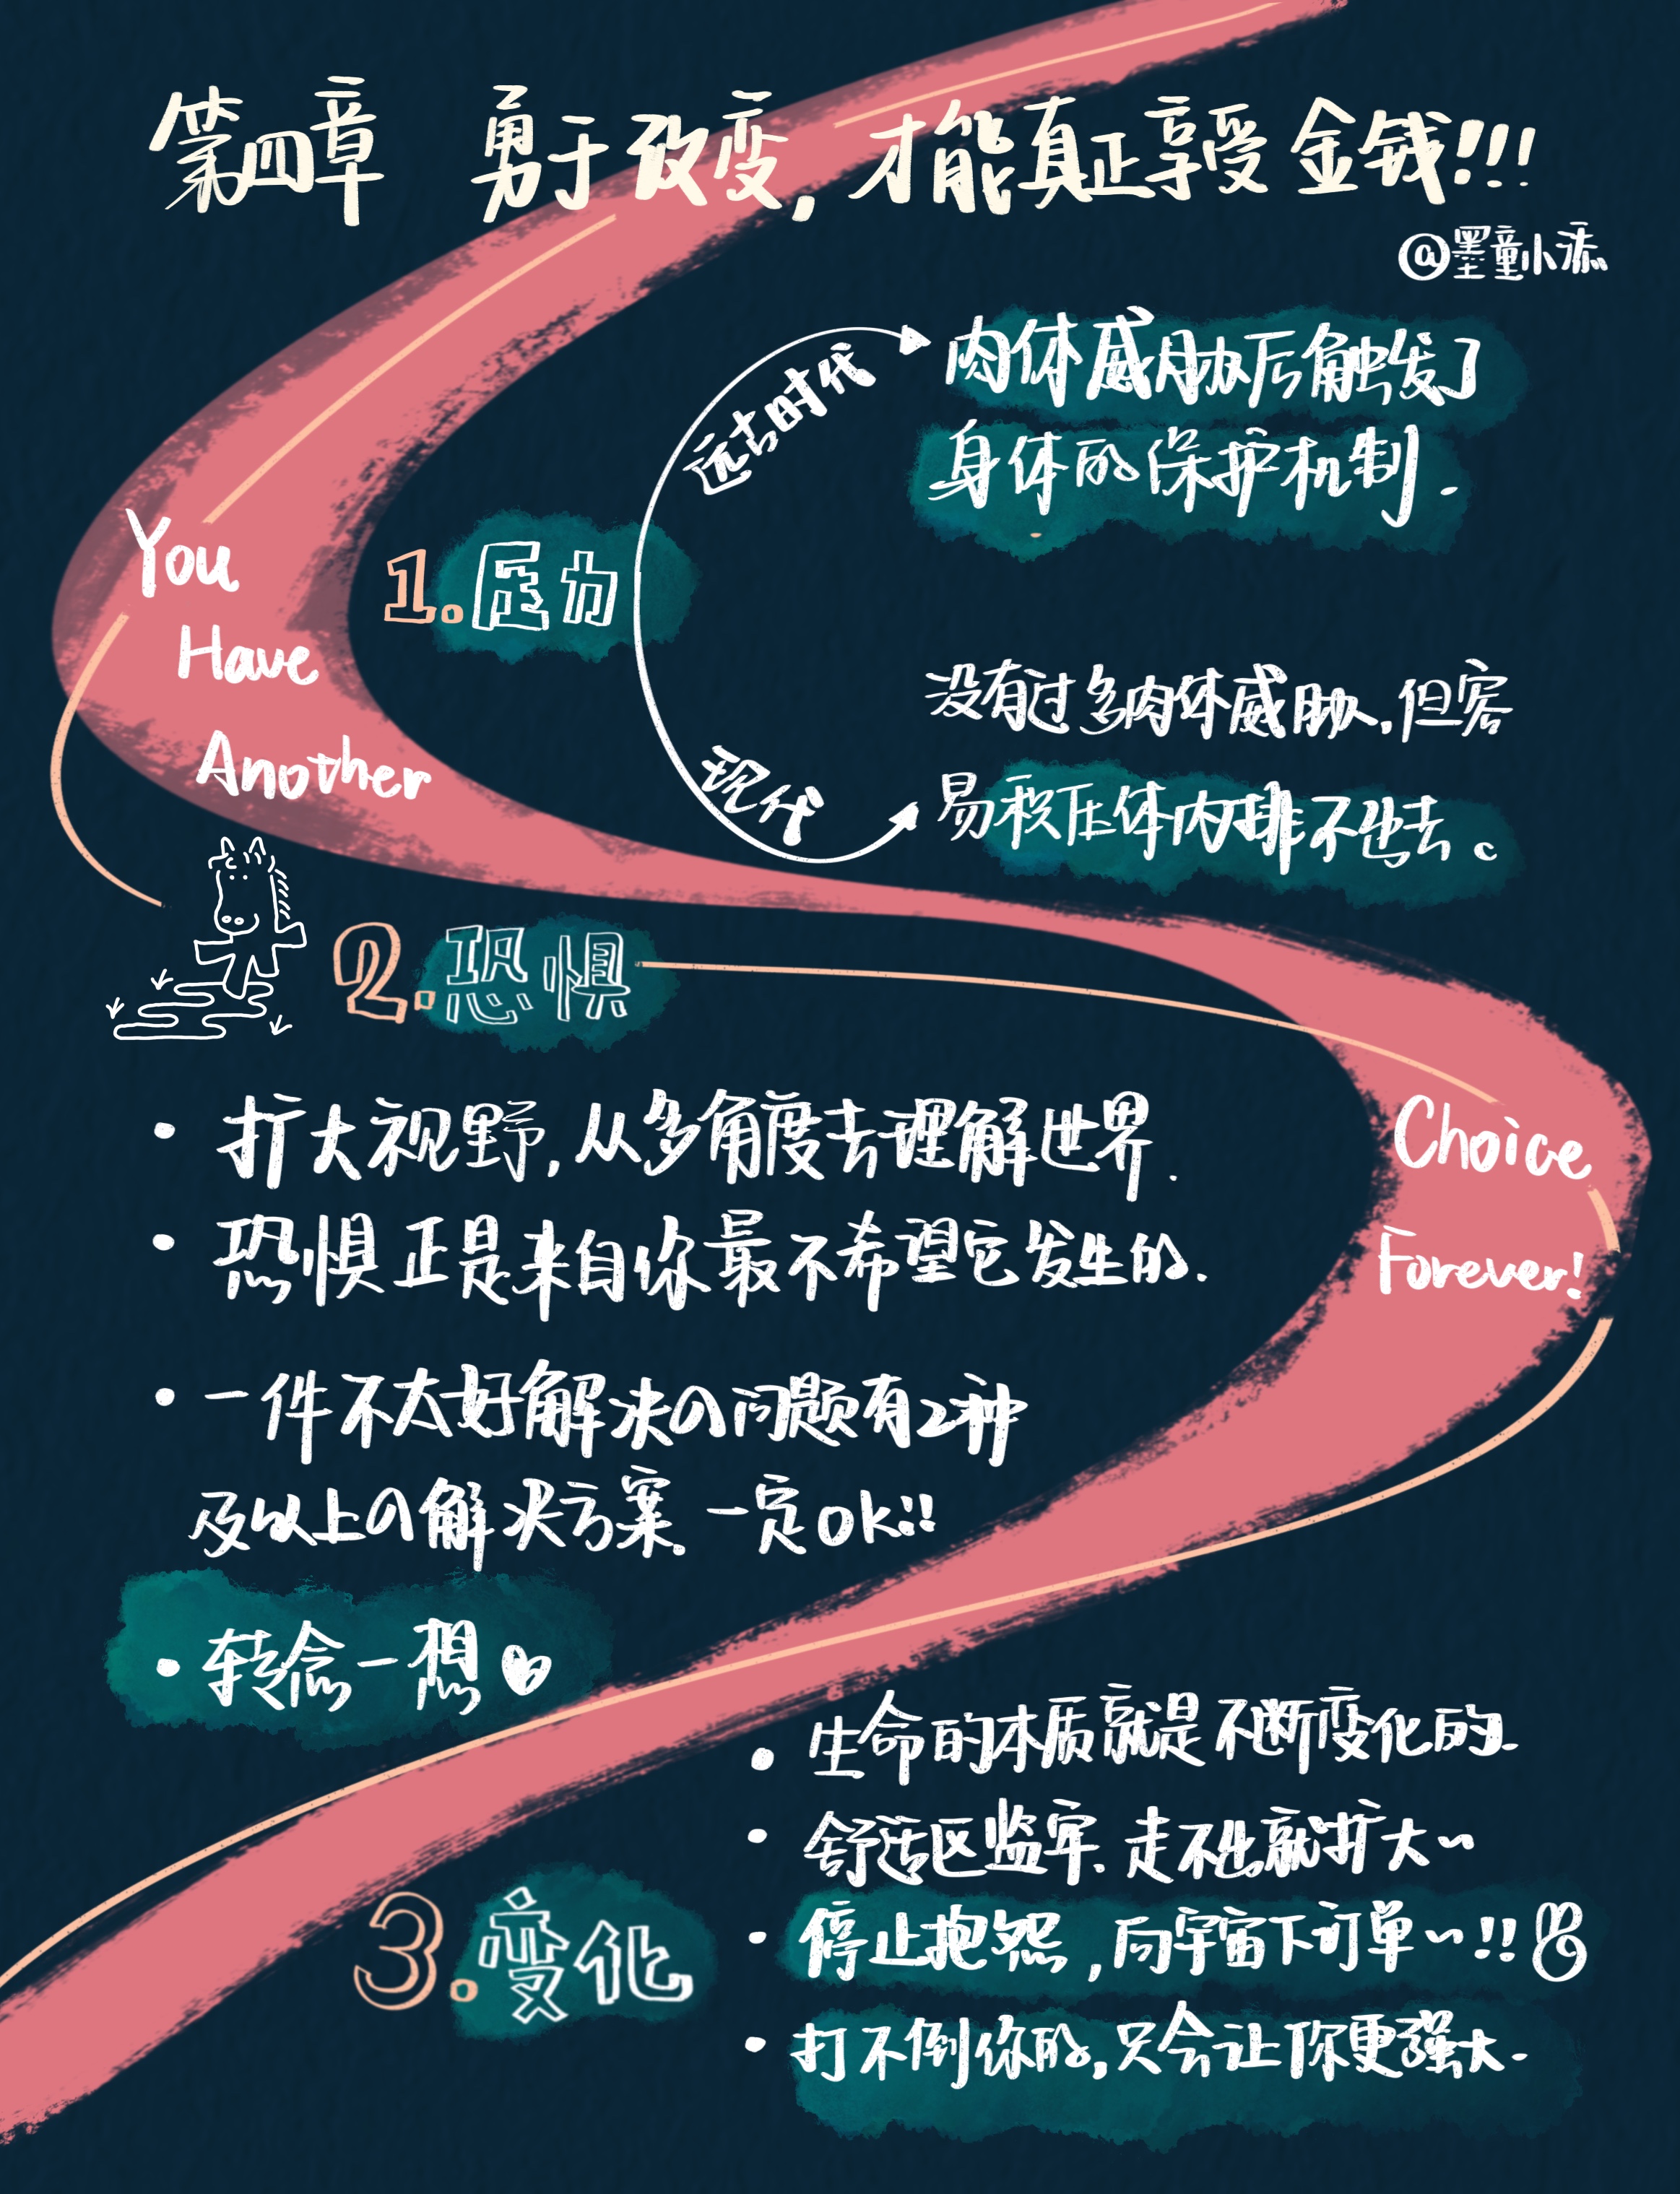 第四章 勇于改变，才能真正享受金钱!!!
@墨童小添
远古时代
肉体威胁后触发了
身体的保护机制.
You
Have
Another
1.压力
现代
没有过多肉体威胁.但容
易积压体内排不出去。
2.恐惧
Choice
Forever!
• 扩大视野,从多角度去理解世界.
• 恐惧正是来自你最不希望它发生的.
• 一件不太好解决の问题有2种
及以上の解决方案.一定ok!!
• 转念一想
3.变化
• 生命的本质就是不断变化的.
• 舒适区监牢.走不出就扩大~
• 停止抱怨,向宇宙下订单~!!
• 打不倒你的,只会让你更强大.